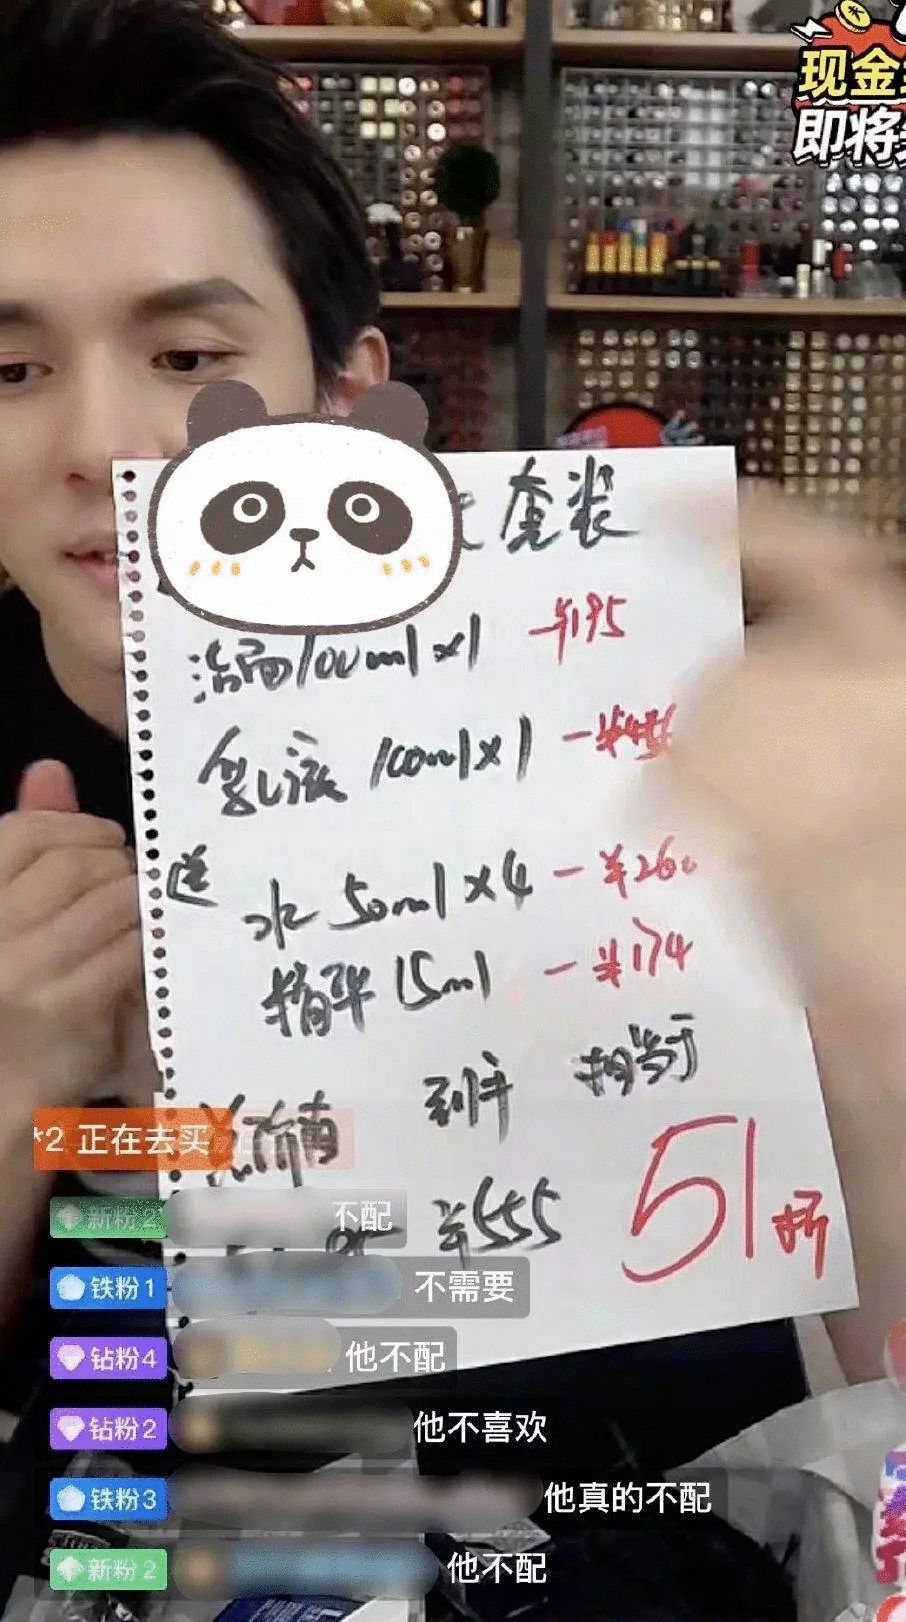 现金
即将
套装
洁面100ml×1 -¥195
乳液100ml×1
送
水50ml×4 -¥260
精华15ml -¥174
到手 相当于
¥555 51折
*2 正在去买
新粉2 不配
铁粉1 不需要
钻粉4 他不配
钻粉2 他不喜欢
铁粉3 他真的不配
新粉2 他不配